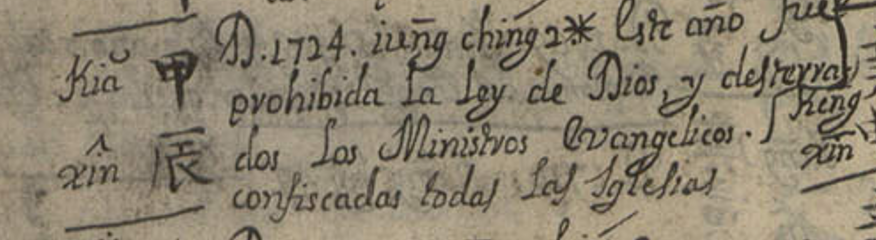 Kiǎ 甲
xîn 辰
D. 1724. iuñg chińg 2* Este año fue
prohibida la Ley de Dios, y desterra
dos los Ministros Evangelicos.
confiscadas todas las Iglesias
Keng
xīn